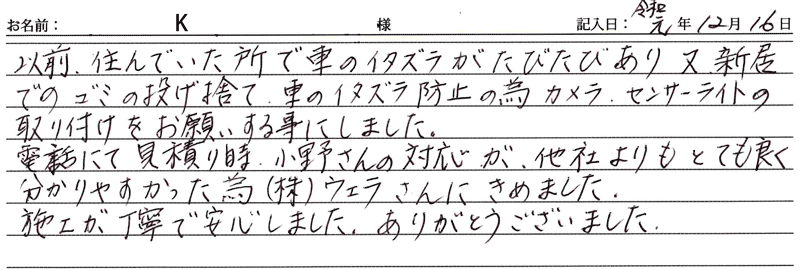 お名前： K 様 記入日：令和元年12月16日
以前、住んでいた所で車のイタズラがたびたびあり又新居
でのゴミの投げ捨て、車のイタズラ防止の為カメラ、センサーライトの
取り付けをお願いする事にしました。
電話にて見積り時、小野さんの対応が、他社よりもとても良く
分かりやすかった為（株）ウェラさんにきめました。
施工が丁寧で安心しました。ありがとうございました。